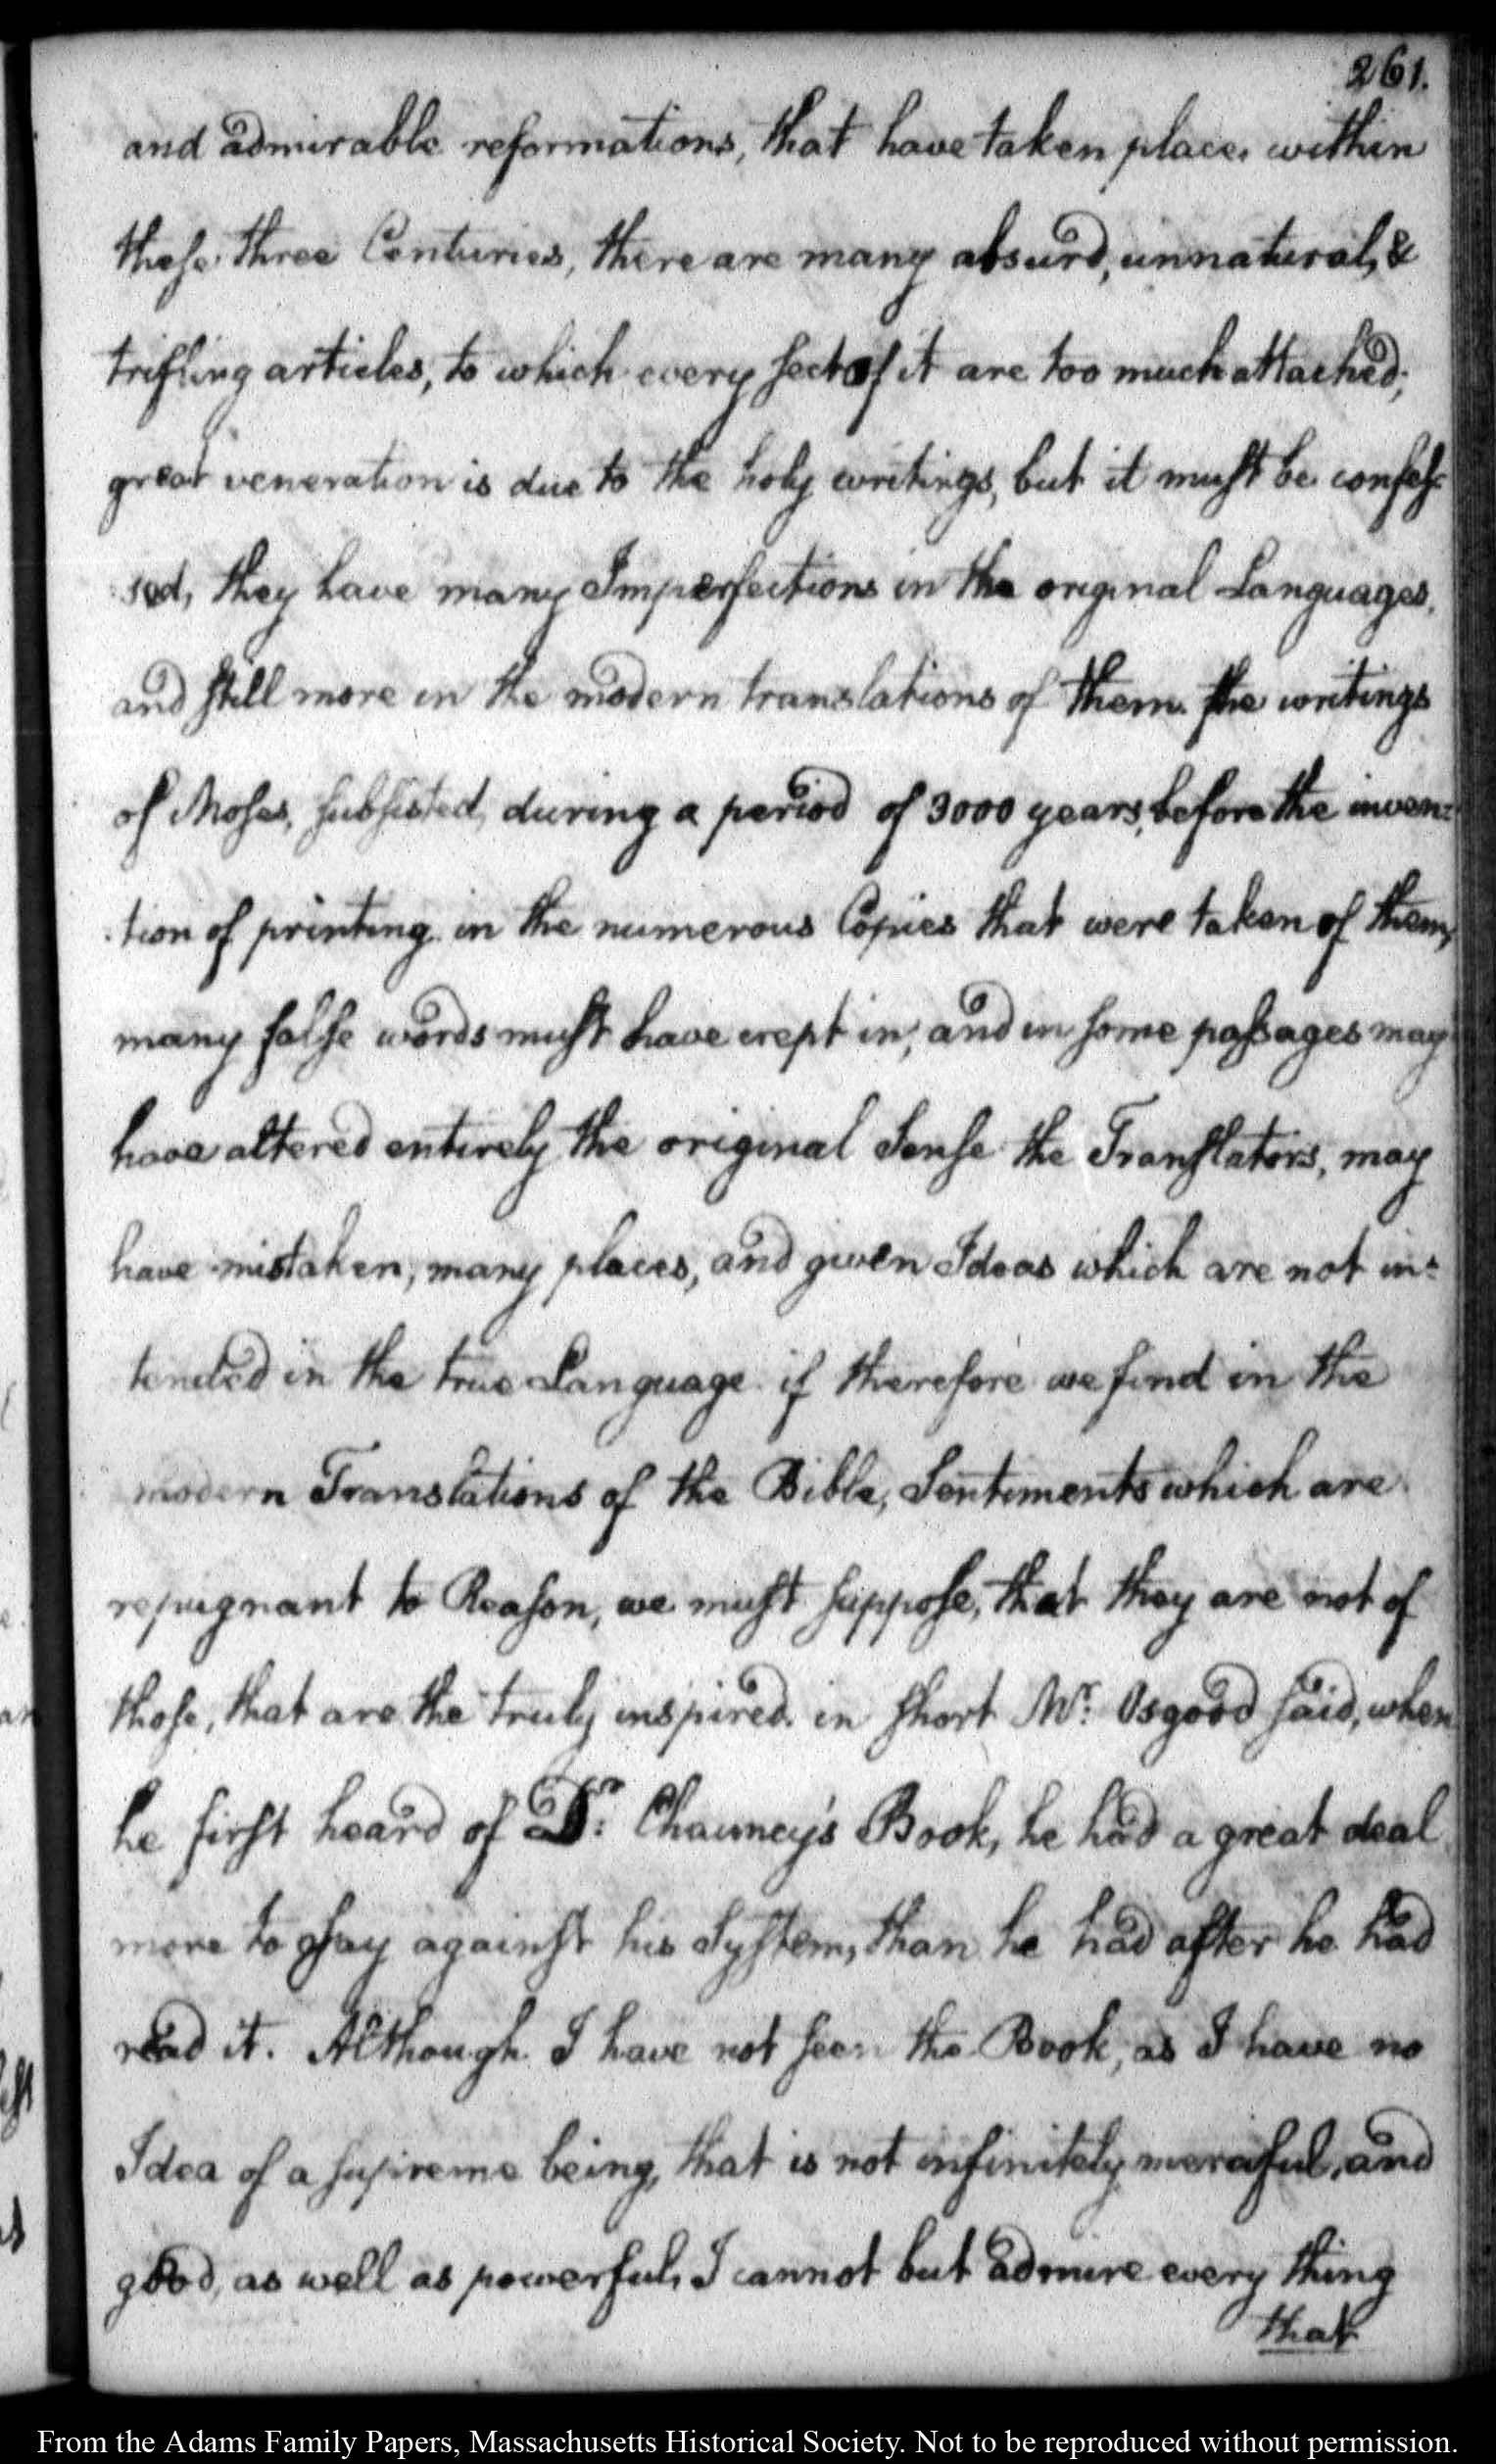 261.
and admirable reformations, that have taken place, within
these three Centuries, there are many absurd, unnatural, &
trifling articles, to which every sect of it are too much attached;
great veneration is due to the holy writings, but it must be confes-
sed, they have many Imperfections in the original Languages,
and still more in the modern translations of them. the writings
of Moses, subsisted, during a period of 3000 years, before the inven=
tion of printing. in the numerous Copies that were taken of them,
many false words must have crept in, and in some passages may
have altered entirely the original Sense the Translators, may
have mistaken, many places, and given Ideas which are not in=
tended in the true Language. if therefore we find in the
modern Translations of the Bible, Sentiments which are
repugnant to Reason, we must suppose, that they are not of
those, that are the truly inspired. in short Mr. Osgood said, when
he first heard of Dr. Chauncey's Book, he had a great deal
more to say against his System, than he had after he had
read it. Although I have not seen the Book, as I have no
Idea of a supireme being, that is not infinitely merciful, and
good, as well as powerful, I cannot but admire every thing
that
From the Adams Family Papers, Massachusetts Historical Society. Not to be reproduced without permission.